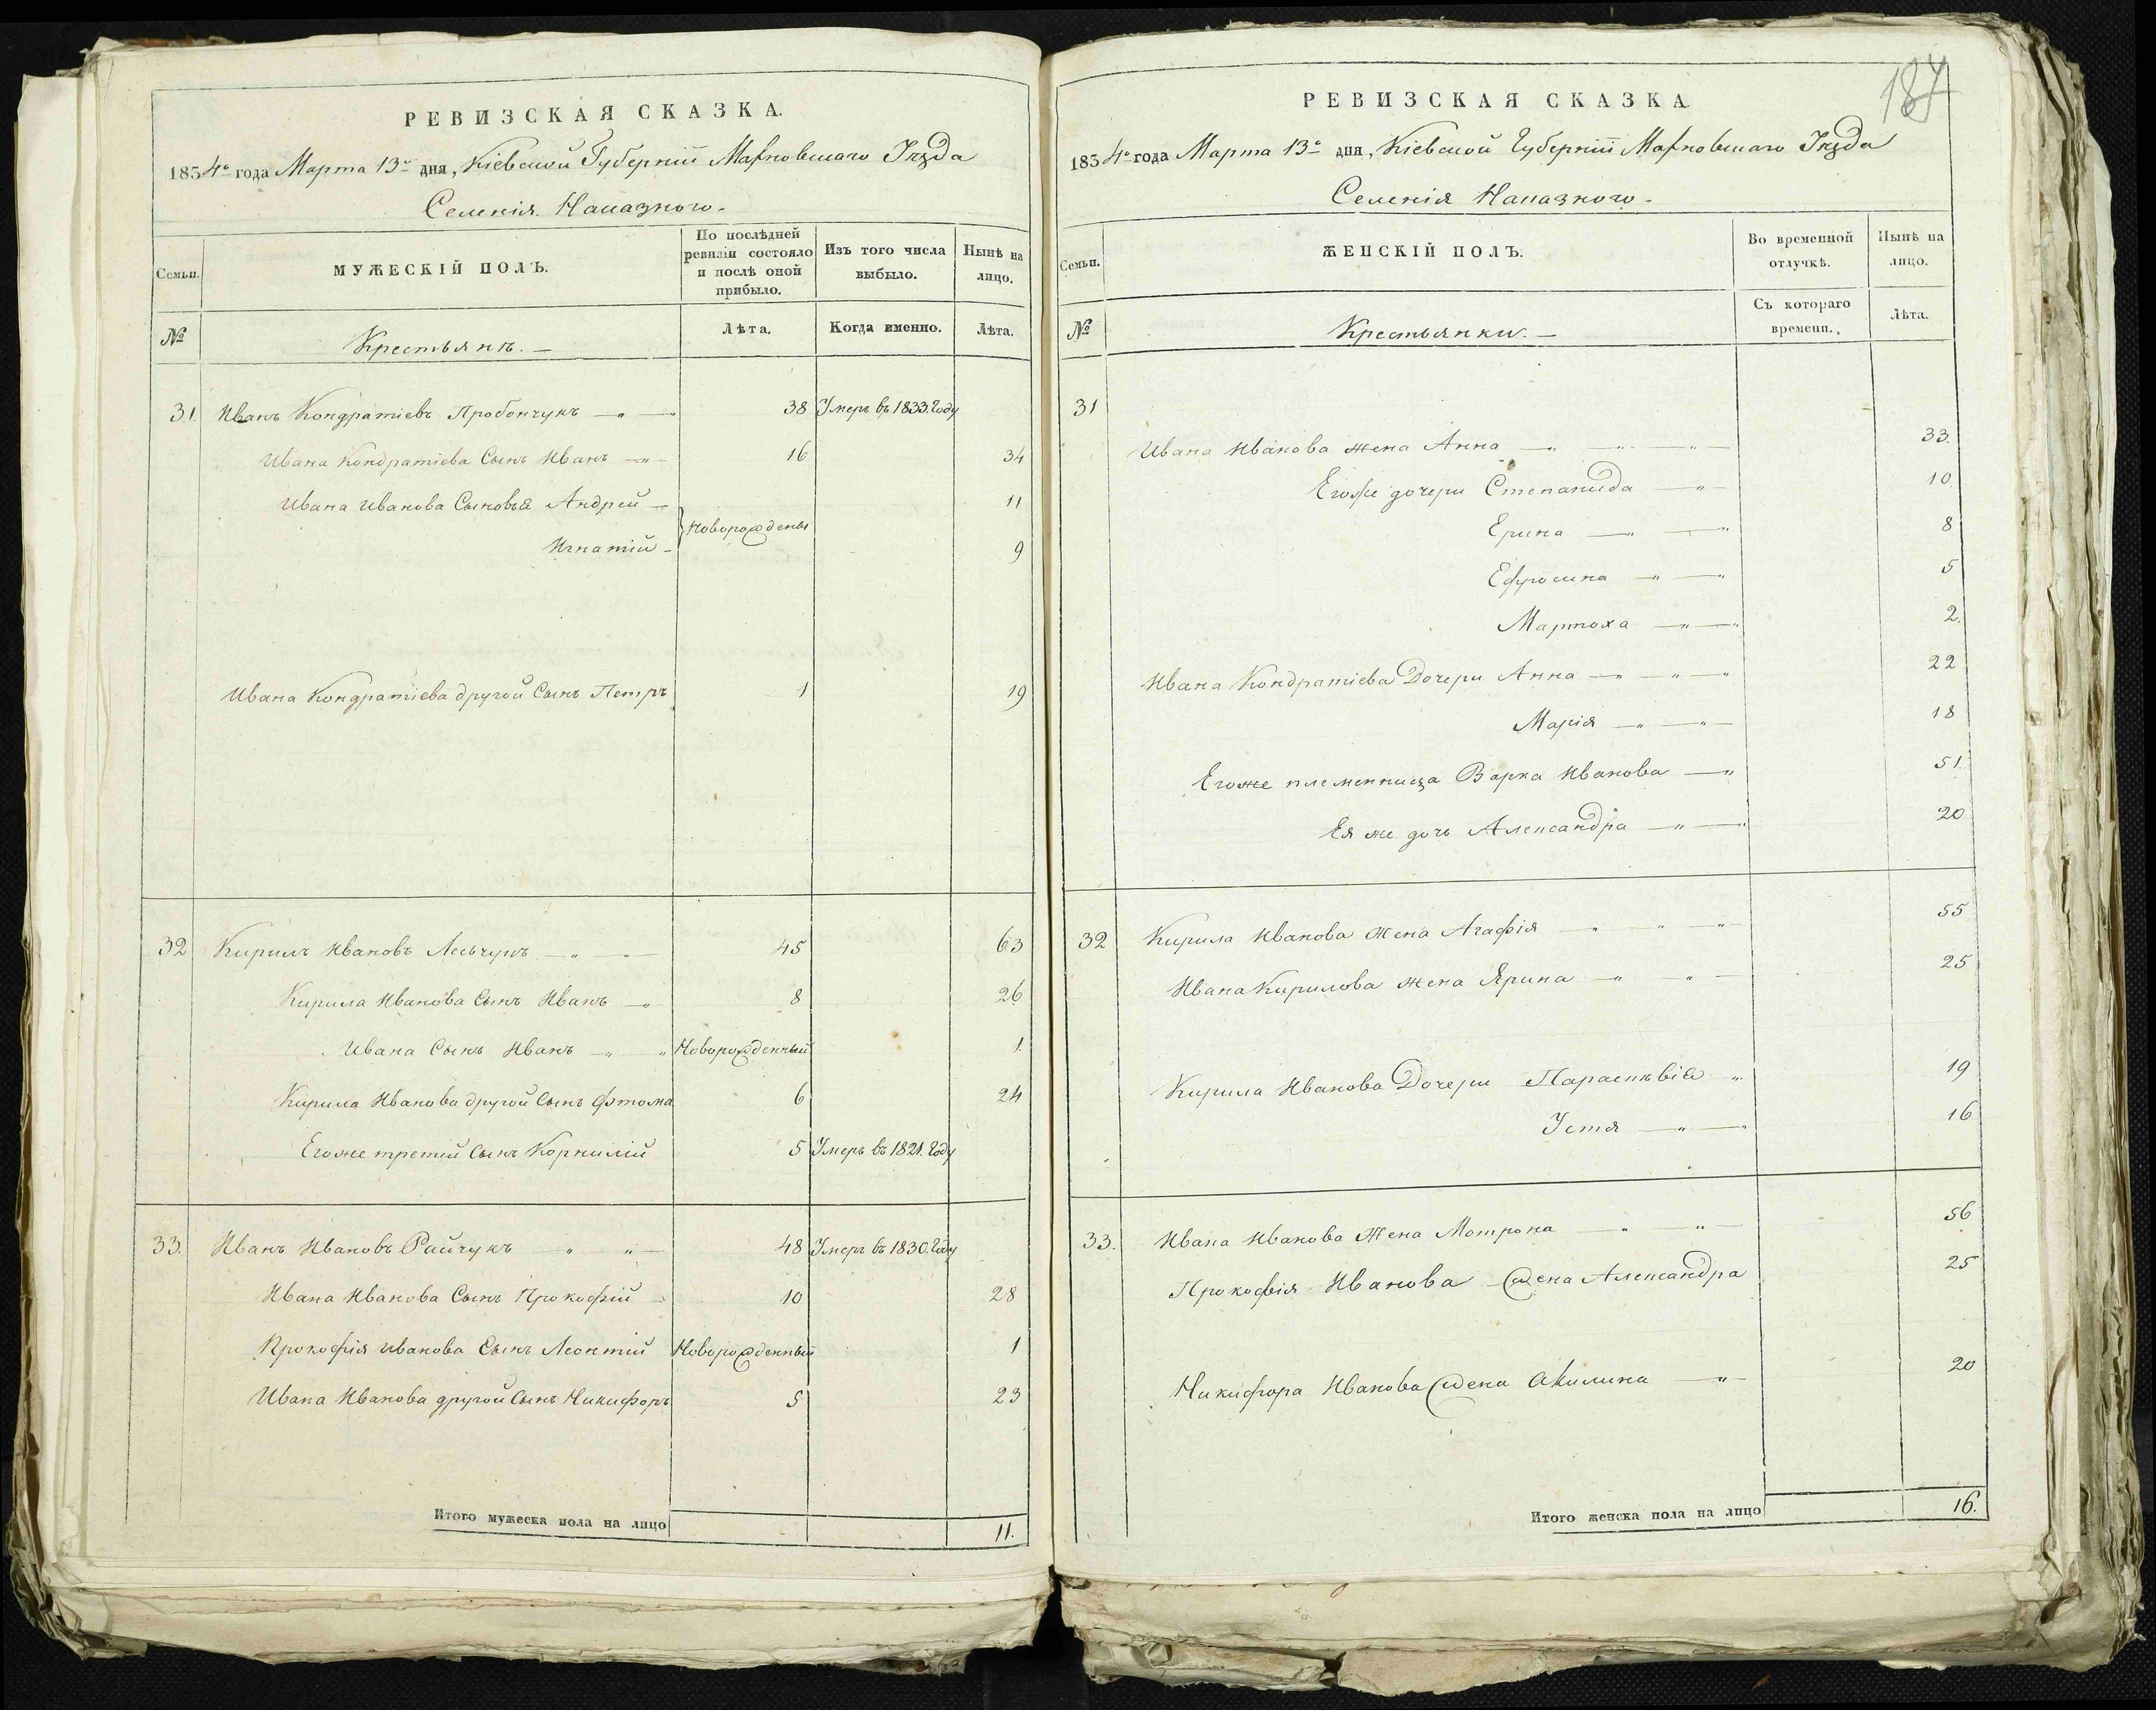 РЕВИЗСКАЯ СКАЗКА.
1834го года Марта 13го дня, Кіевской Губерніи Махновскаго Уѣзда
Селенія
Семьи.
МУЖЕСКІЙ ПОЛЪ.
По послѣдней ревизіи состояло и послѣ оной прибыло.
Изъ того числа выбыло.
Нынѣ на лицо.
№
Крестьянѣ. —
Лѣта.
Когда именно.
Лѣта.
31. Иванъ Кондратіевъ Пробончукъ — " — 38 Умеръ въ 1833. Году
Ивана Кондратіева Сынъ Иванъ — " — 16 34
Ивана Иванова Сыновья Андрей — 11
Новорождены
Игнатій — 9
Ивана Кондратіева другой Сынъ Петръ 1 19
32 Кирилъ Ивановъ Лесьчукъ — " — " — 45 63
Кирила Иванова Сынъ Иванъ — " 8 26
Ивана Сынъ Иванъ — " " Новорожденный 1.
Кирила Иванова другой Сынъ Фтома 6 24
Егоже третий Сынъ Корнилій 5 Умеръ въ 1821. Году
33. Иванъ Ивановъ Райчукъ — " " — 48 Умеръ въ 1830. Году
Ивана Иванова Сынъ Прокофій — 10 28
Прокофія Иванова Сынъ Леонтий Новорожденный 1
Ивана Иванова другой Сынъ Никифоръ 5 23
Итого мужеска пола на лицо 11.
187
РЕВИЗСКАЯ СКАЗКА.
1834го года Марта 13го дня, Кіевской Губерніи Махновскаго Уѣзда
Селенія
Семьи.
ЖЕНСКІЙ ПОЛЪ.
Во временной отлучкѣ.
Нынѣ на лицо.
№
Крестьянки. —
Съ котораго времени.
Лѣта.
31
Ивана Иванова жена Анна — " — " — " — 33.
Егоже дочери Степанида — " — 10
Ерина — " — " 8
Ефросина — " — " 5
Мартоха — " — " 2.
Ивана Кондратіева Дочери Анна — " — " — " 22
Марія — " — " — 18
Егоже племенница Варка Иванова — " 51.
Ея же дочь Александра — " — " 20
32 Кирила Иванова жена Агафія — " " — " — 55
Ивана Кирилова жена Ярина — " " — 25
Кирила Иванова Дочери Параскѣвія " 19
Устя — " — " 16
33. Ивана Иванова Жена Мотрона — " — " — 56
Прокофія Иванова Жена Александра 25
Никифора Иванова Жена Акилина — " — 20
Итого женска пола на лицо 16.